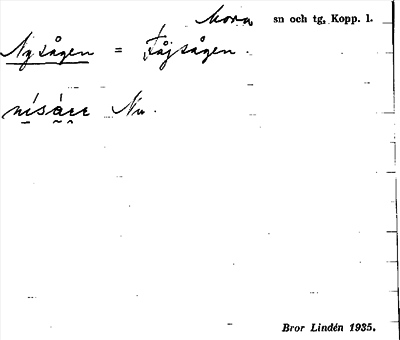 Mora sn och tg, Kopp. l.
Nysågen = Tåjsågen.
Nu.
Bror Lindén 1935.